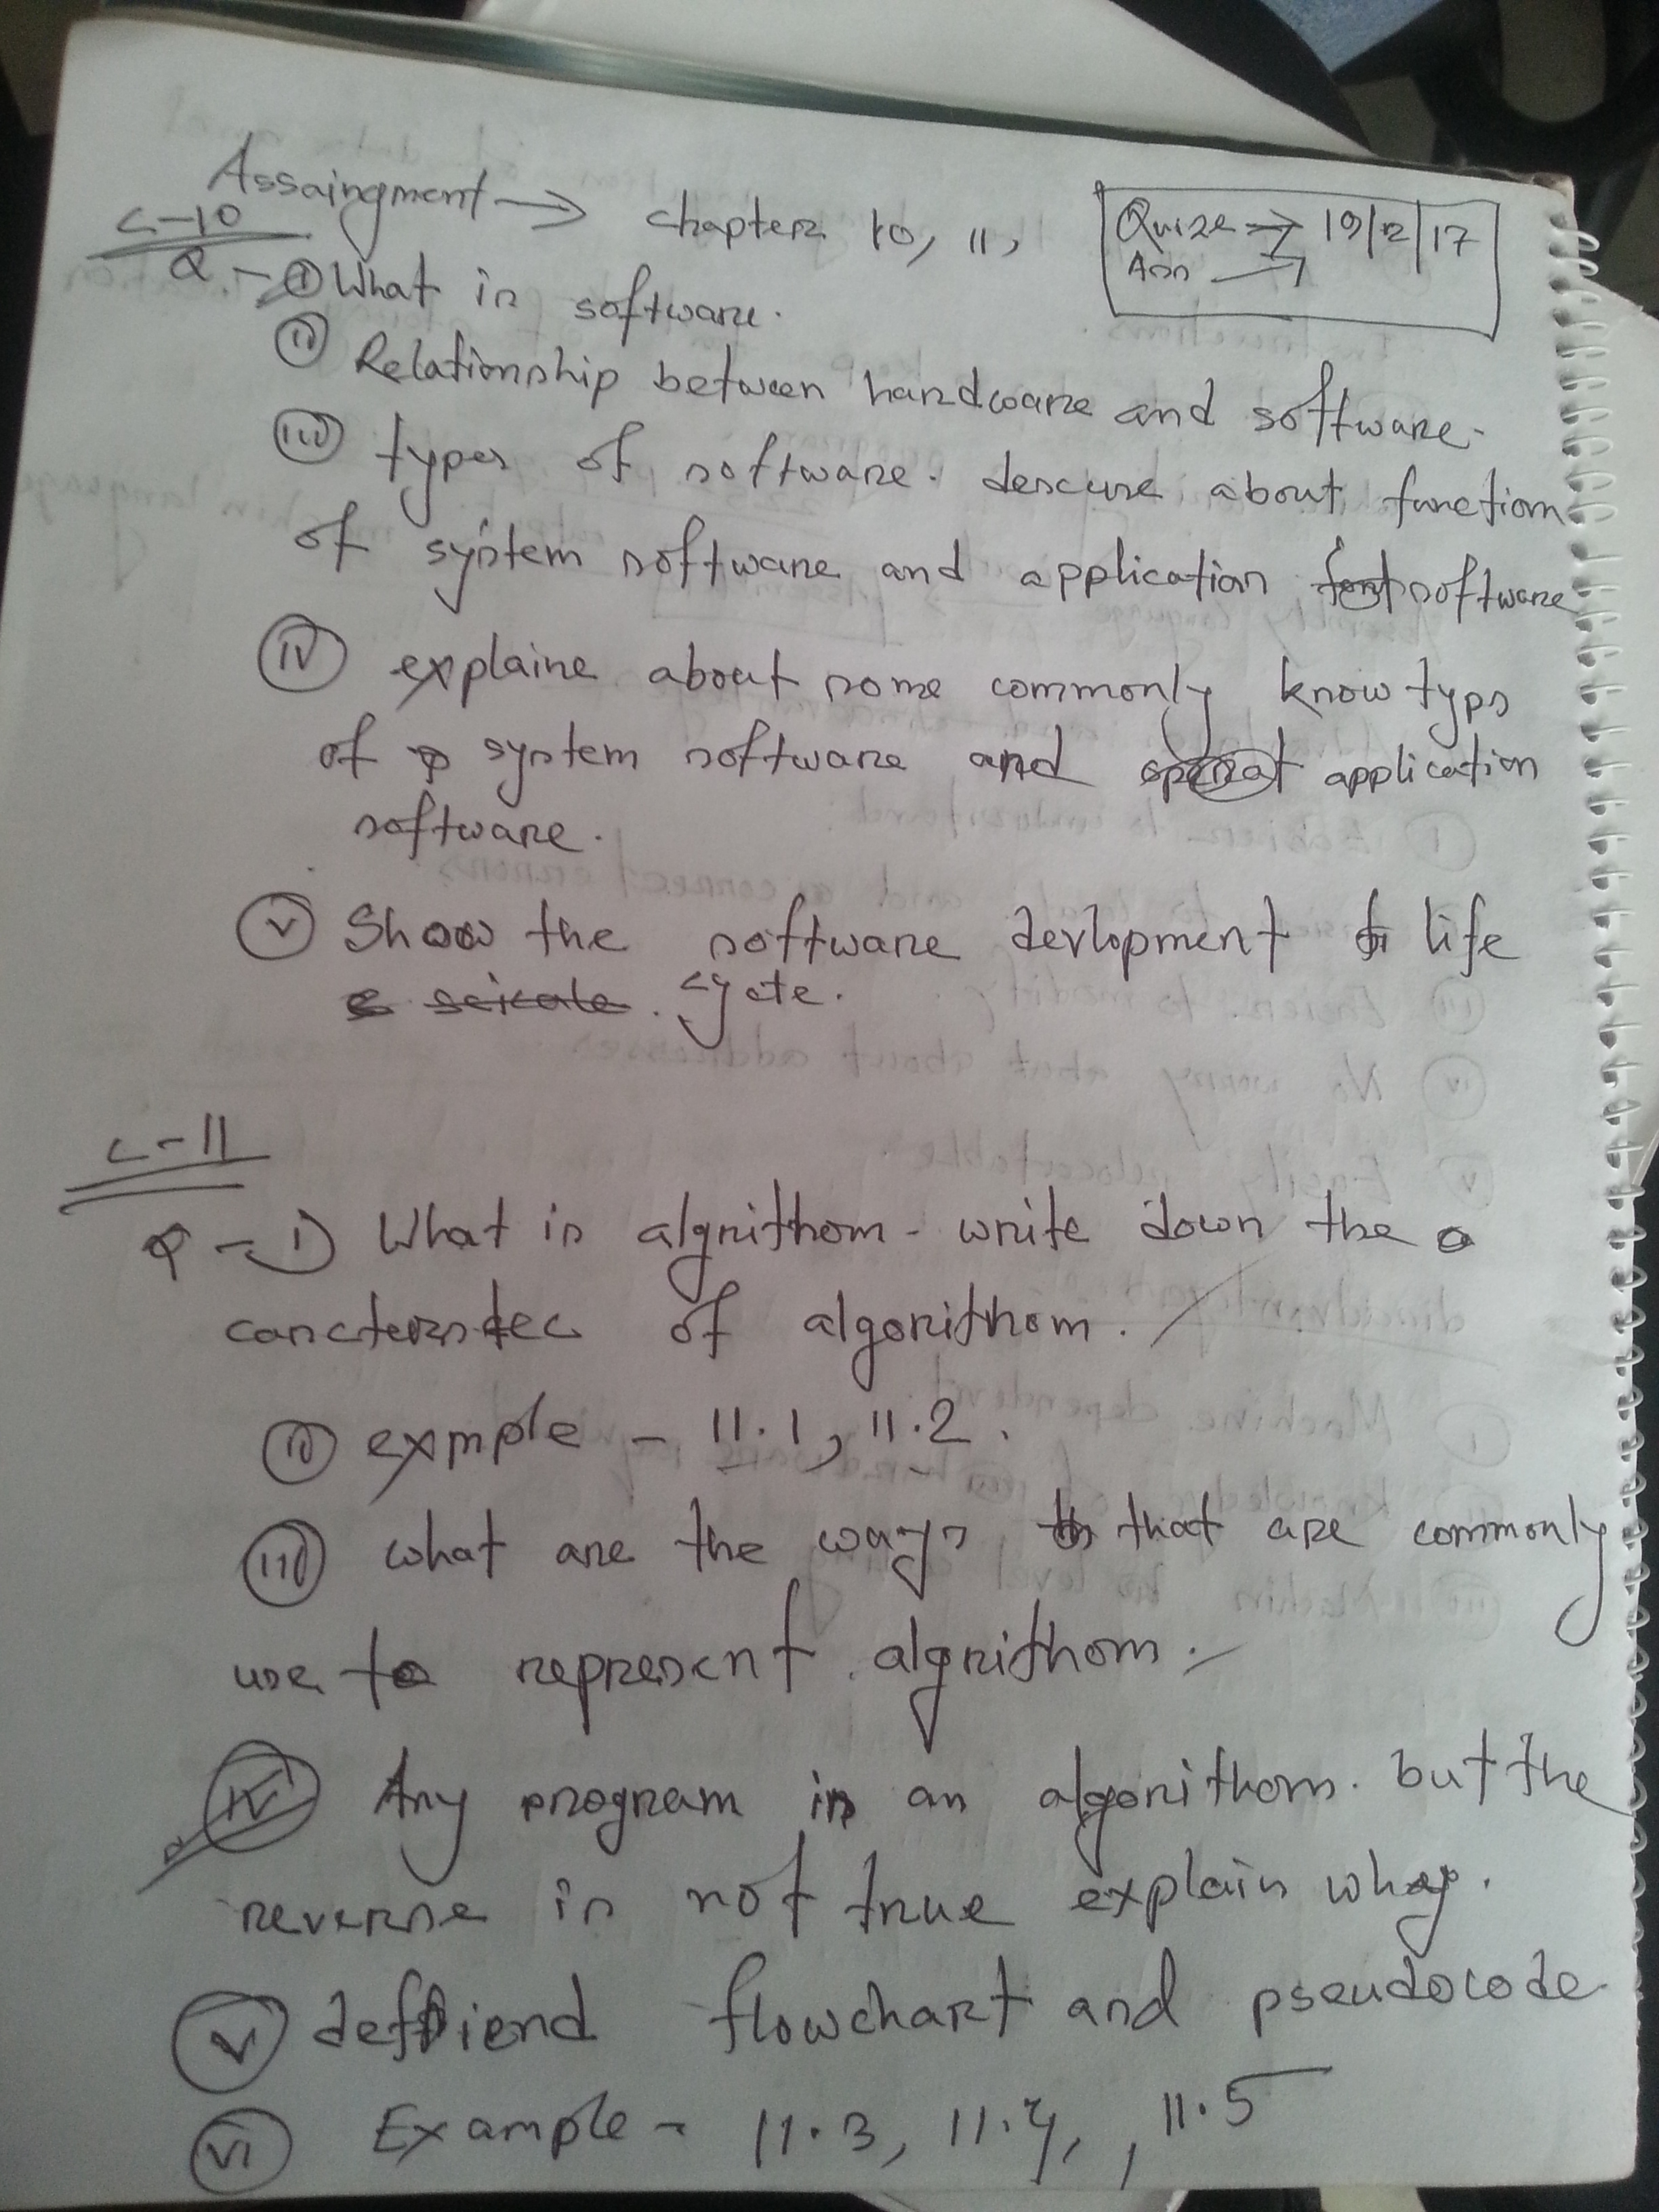 Assaingment → chapter 10, 11,
Quize → 19/2/17
Ass →
C-10
Q - (i) What is software.
(ii) Relationship between hardware and software.
(iii) types of software. descuse about function
of system software and application software
(iv) explaine about some commonly know typs
of system software and application
software.
(v) Show the software devlopment life
cycle.
C-11
Q - i) What is algrithom - write down the
carcterstec of algorithom.
(ii) exmple - 11.1, 11.2.
(iii) what are the ways that are commonly
use to represent algrithom.
(iv) Any program is an algorithom. but the
reverse is not true explain why.
(v) deffiend flowchart and pseudocode
(vi) Example - 11.3, 11.4, , 11.5